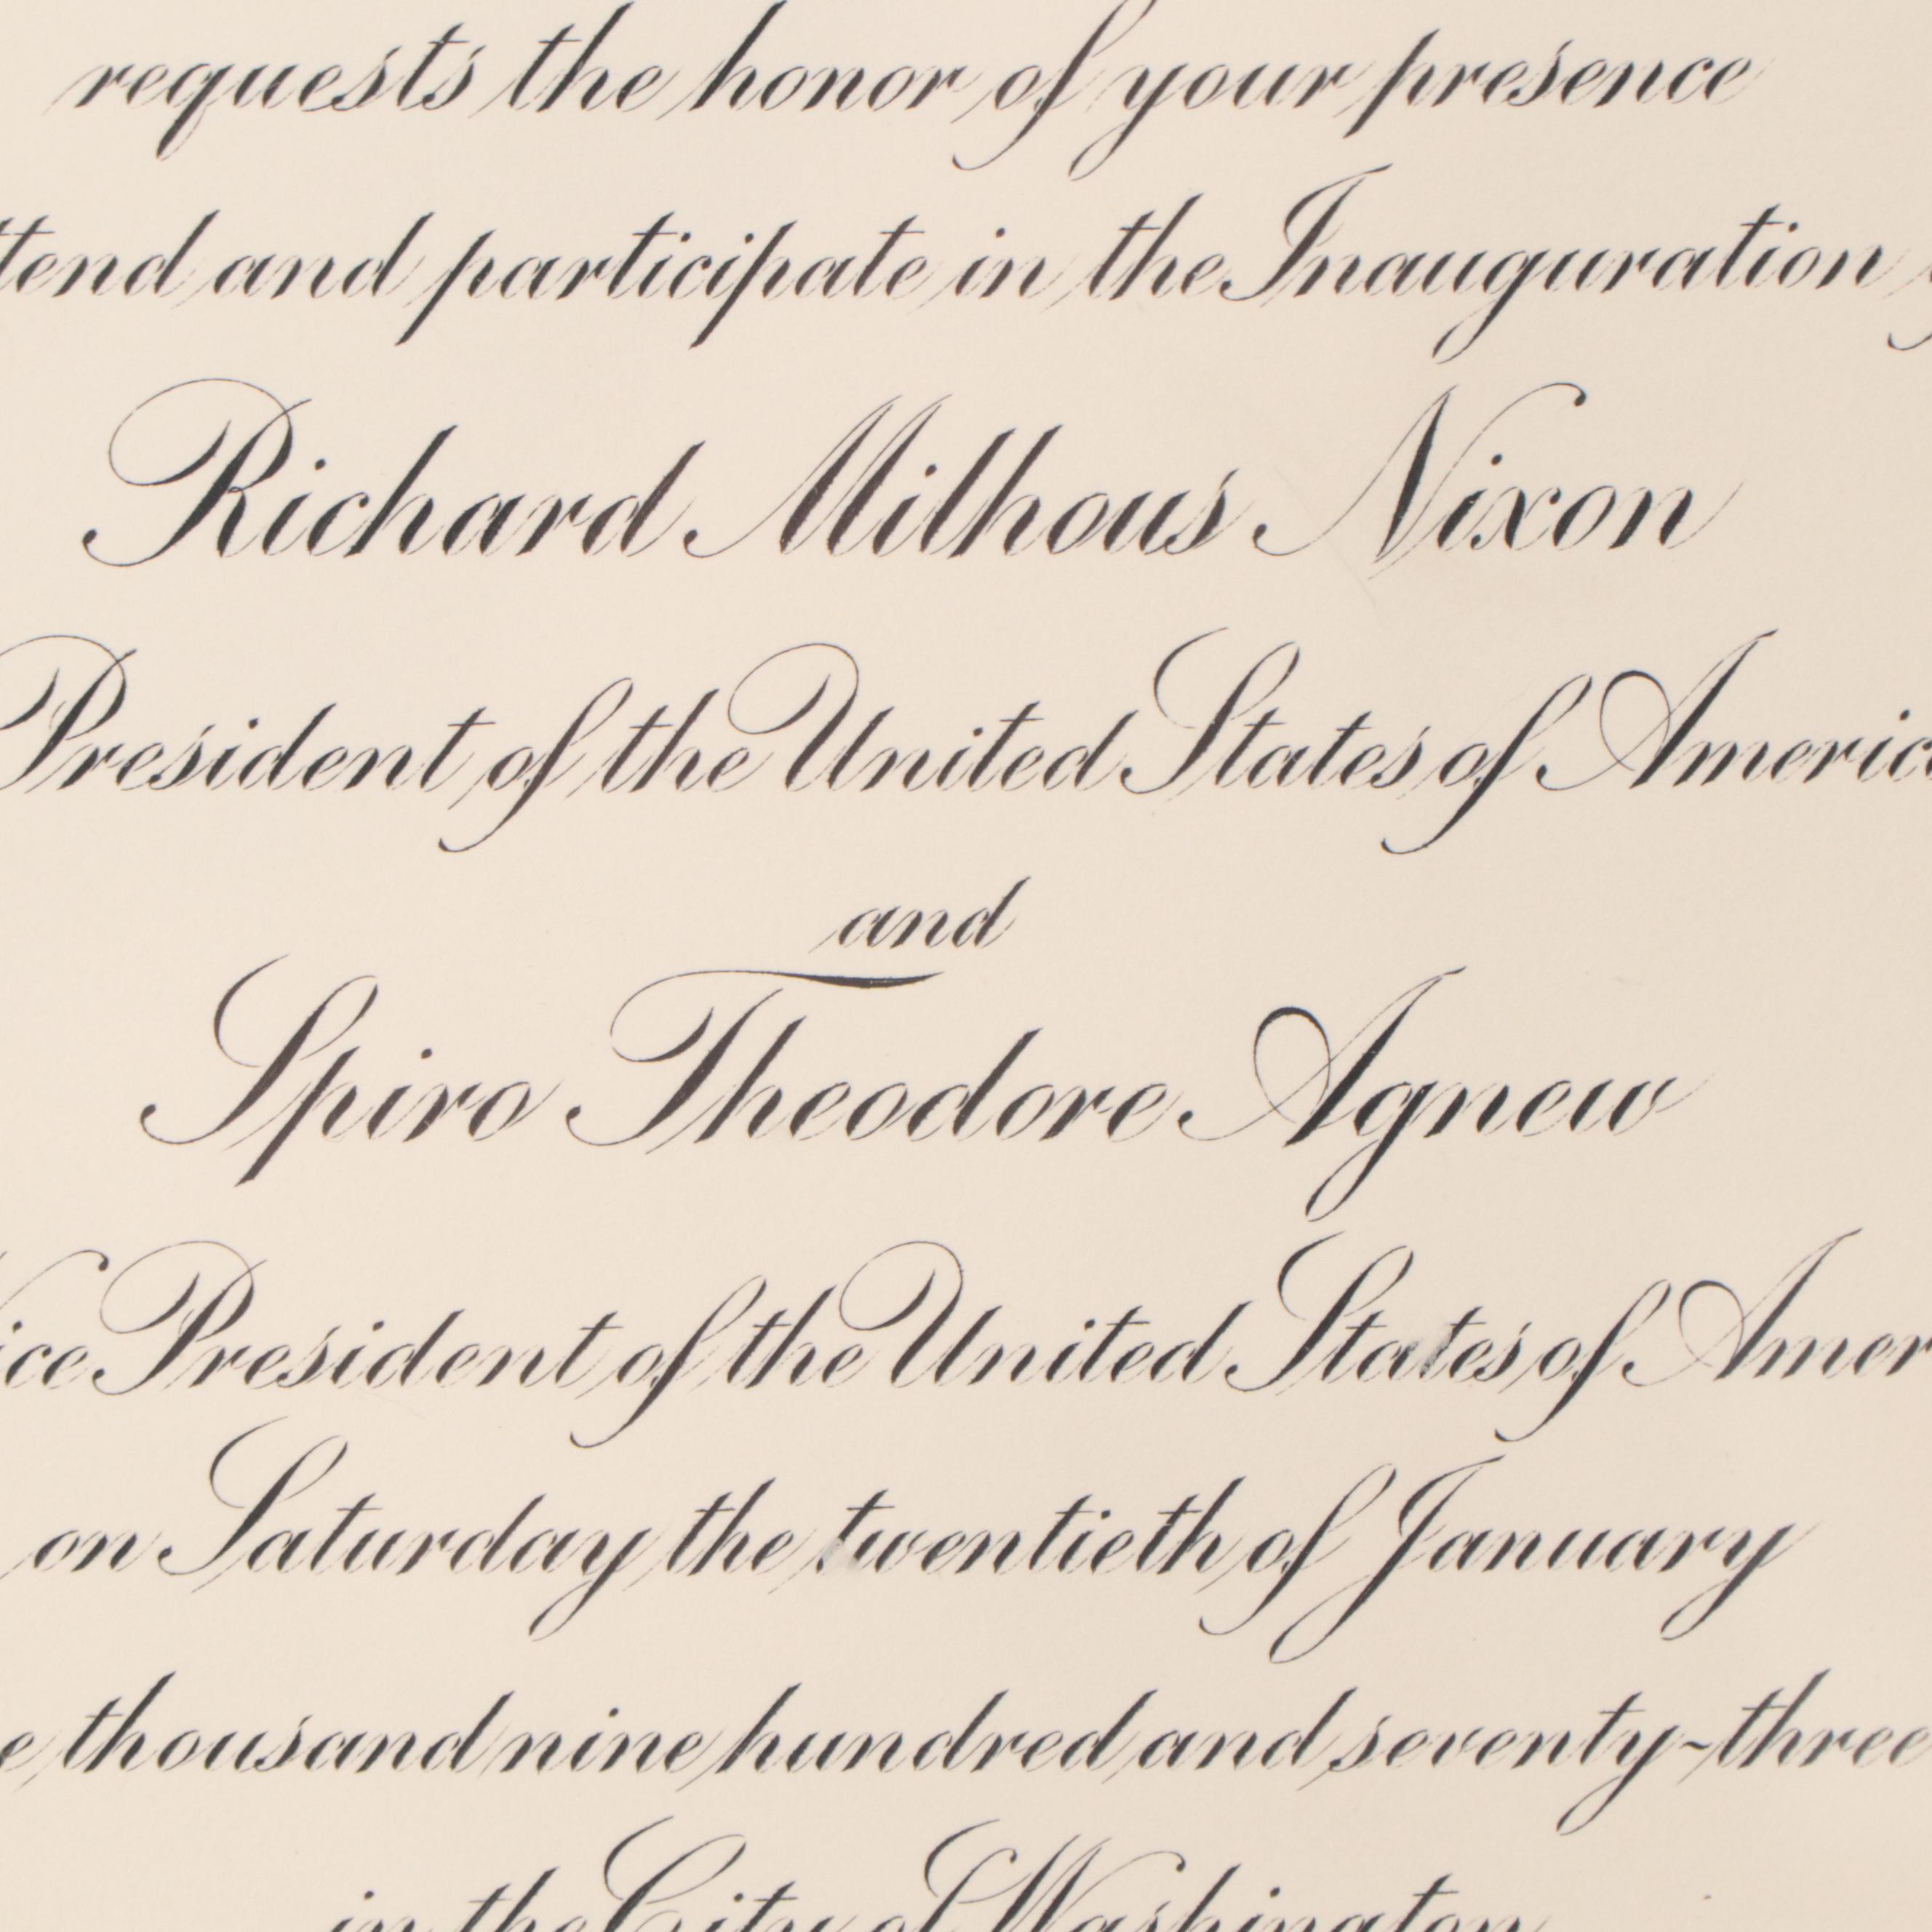 requests the honor of your presence
ttend and participate in the Inauguration
Richard Milhous Nixon
President of the United States of Americ
and
Spiro Theodore Agnew
ice President of the United States of Amer
on Saturday the twentieth of January
e thousand nine hundred and seventy-three
in the City of Washington